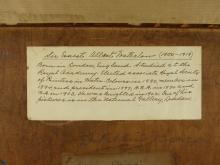 Sir Ernest Albert Waterlow (1850-1919)
Born in London, England. Studied at the
Royal Academy. Elected associate Royal Society
of Painters in Water Colours in 1880, member in
1894, and president in 1897. A.R.A. in 1890 and
R.A. in 1903. He was knighted in 1902. One of his
pictures is in the National Gallery, London